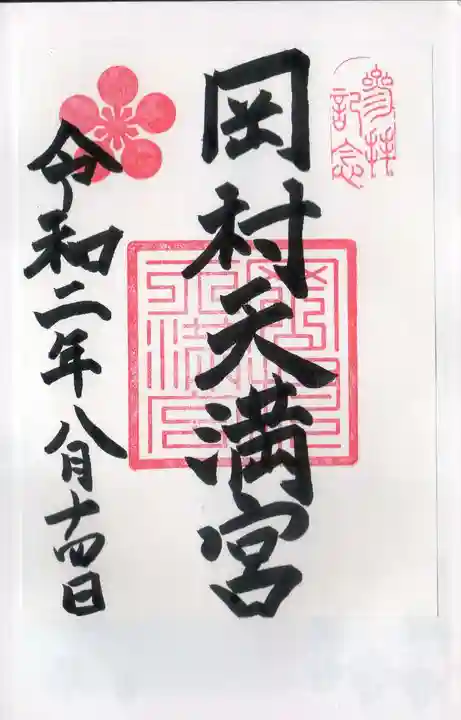 參拝
記念
岡村天満宮
令和二年八月十四日